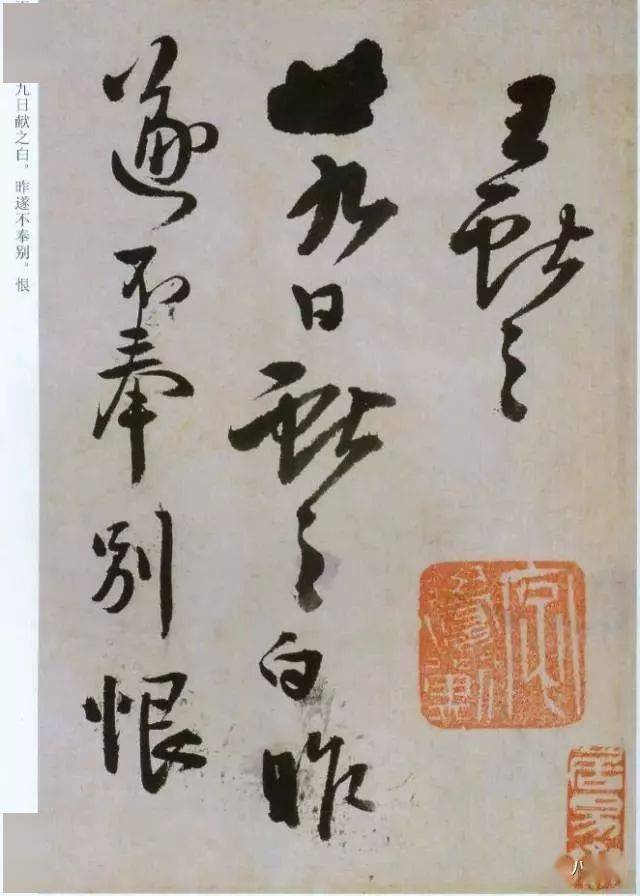 王献之
廿九日献之白昨
遂不奉别恨
九日献之白。昨遂不奉别。恨
八